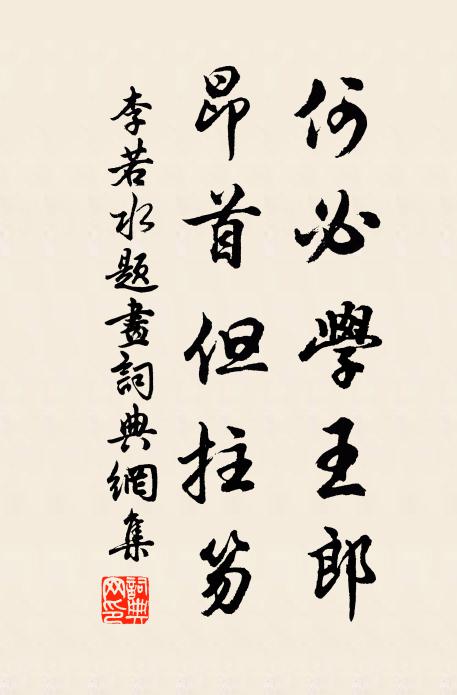 何必學王郎
昂首但拄笏
李若水題畫詞典網集
詞典网印